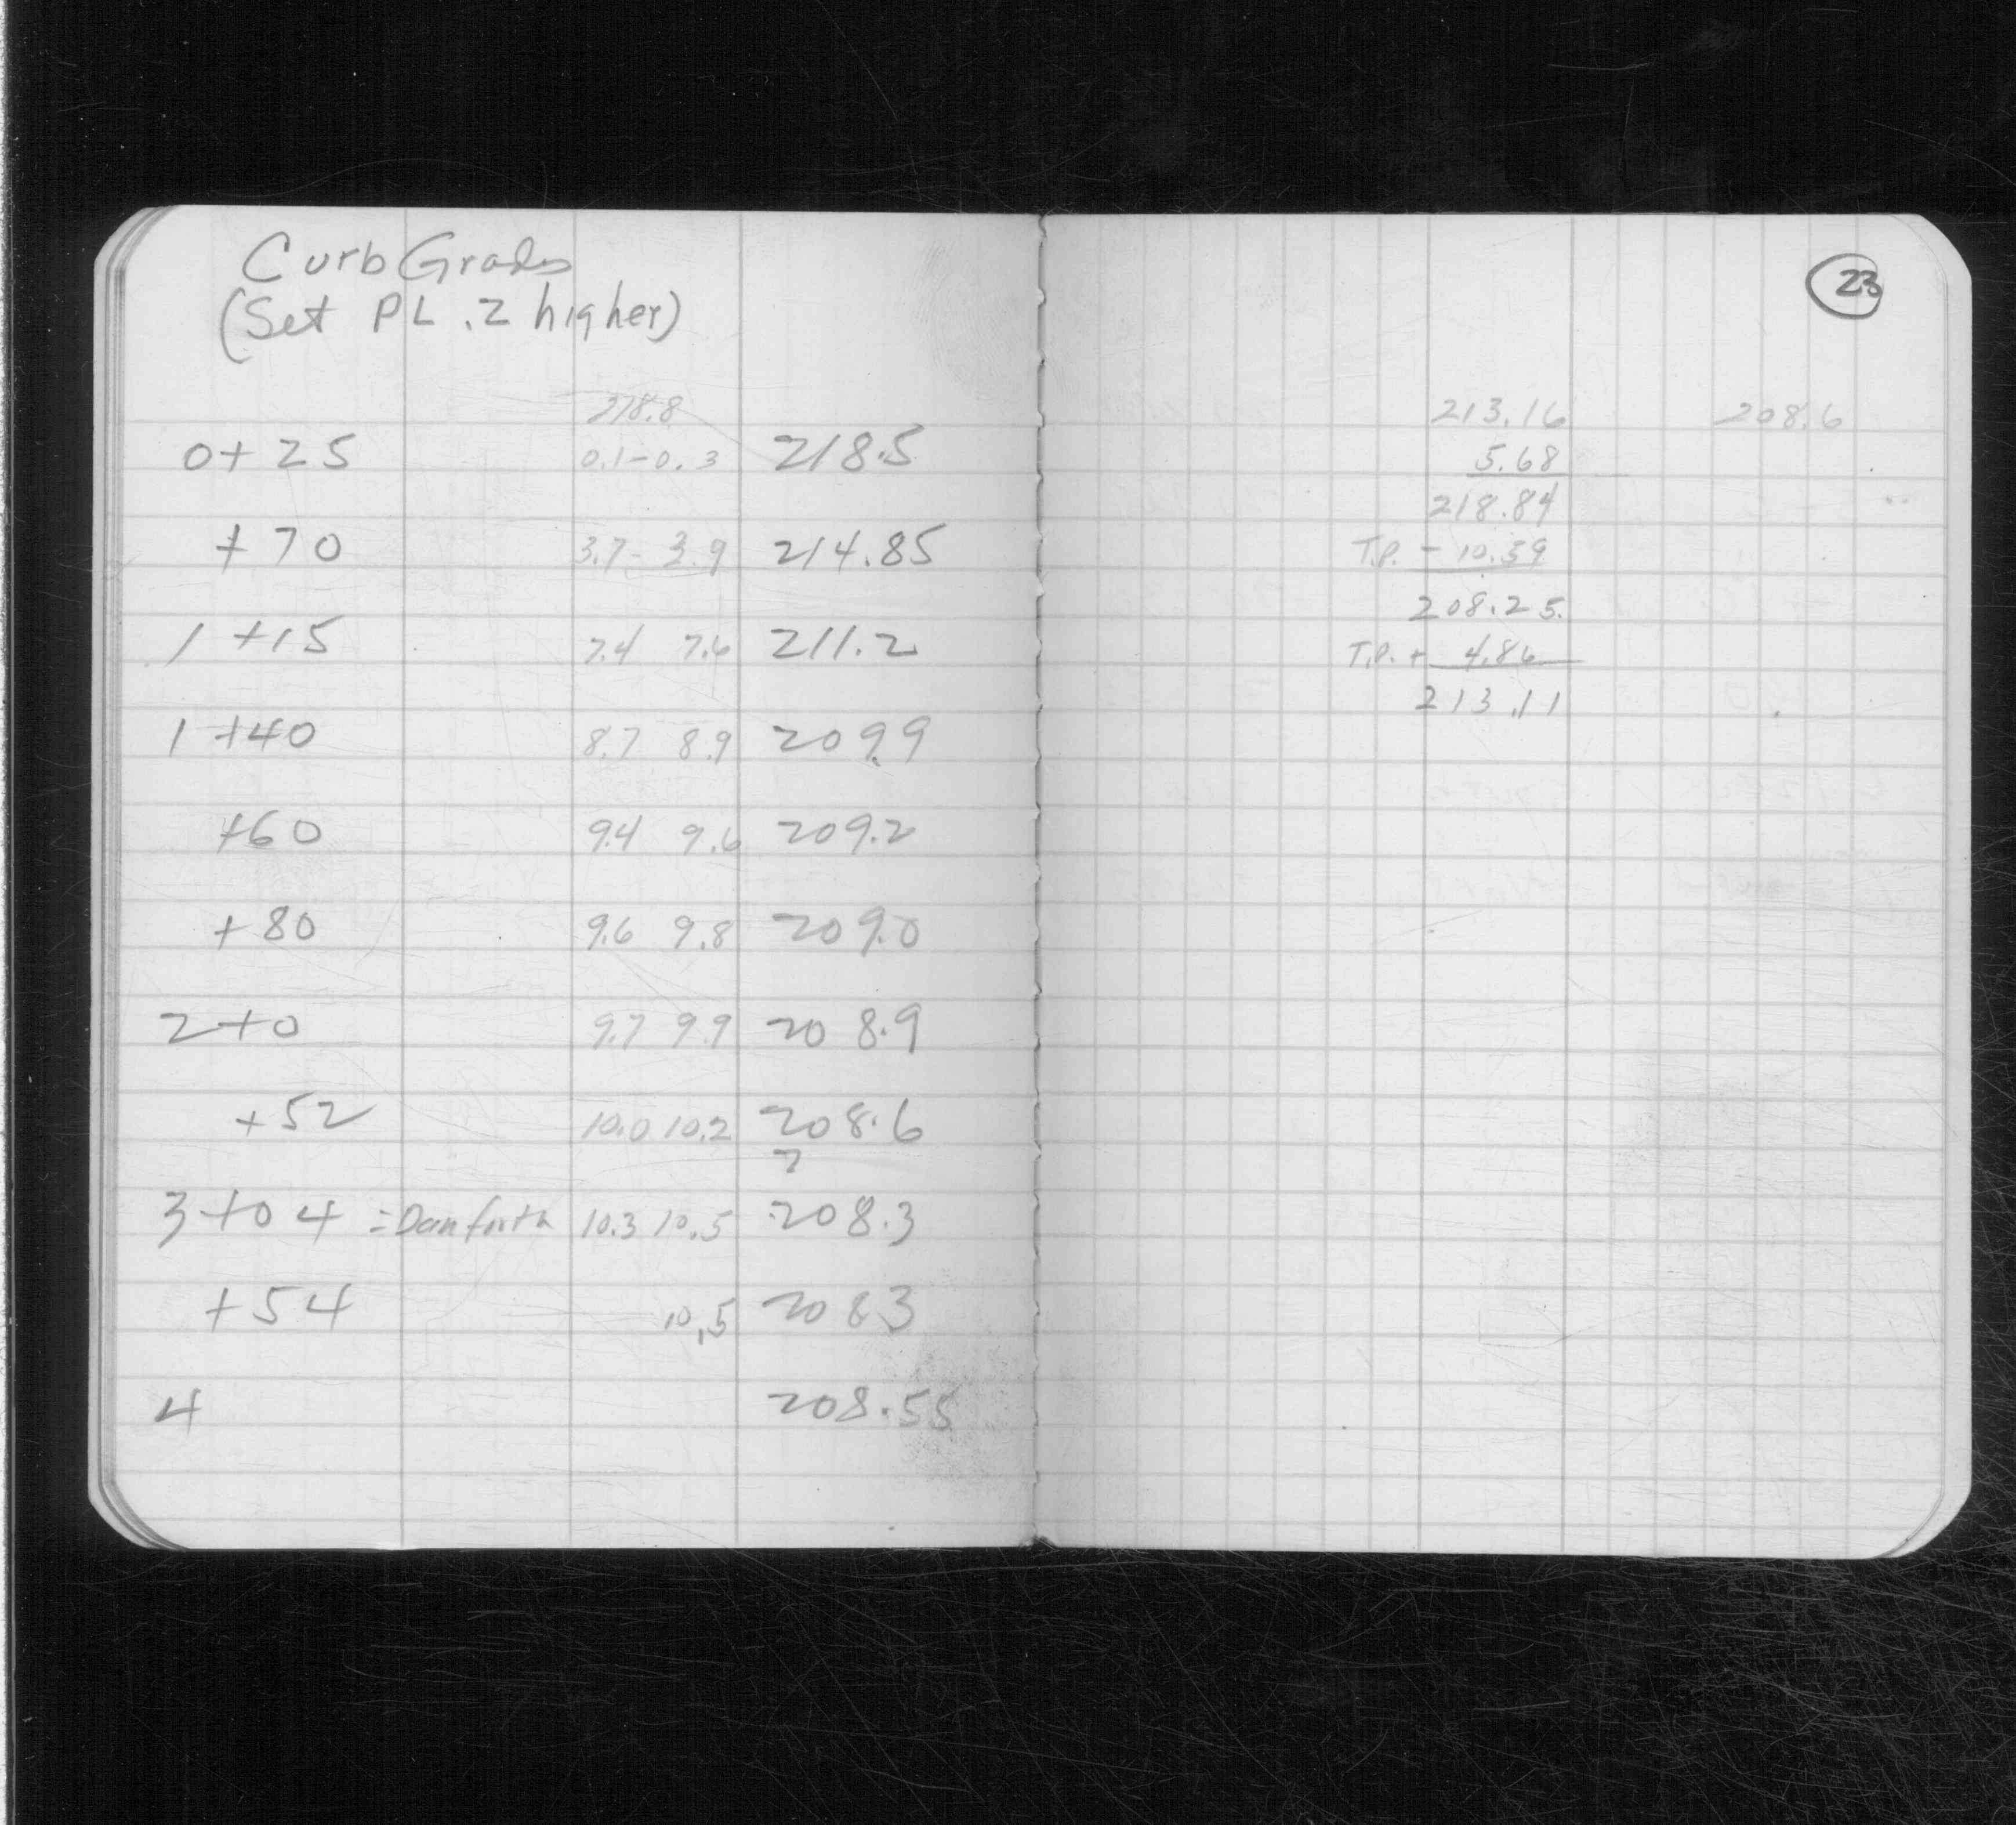 Curb Grades
(Set PL .2 higher)
218.8
0+25 0.1-0.3 218.5
+70 3.7-3.9 214.85
1+15 7.4 7.6 211.2
1+40 8.7 8.9 209.9
+60 9.4 9.6 209.2
+80 9.6 9.8 209.0
2+0 9.7 9.9 208.9
+52 10.0 10.2 208.6
?
3+04 = Danforth 10.3 10.5 208.3
+54 10.5 208.3
4 208.55
23
213.16 208.6
5.68
218.84
T.P. - 10.59
208.25
T.P. + 4.86
213.11